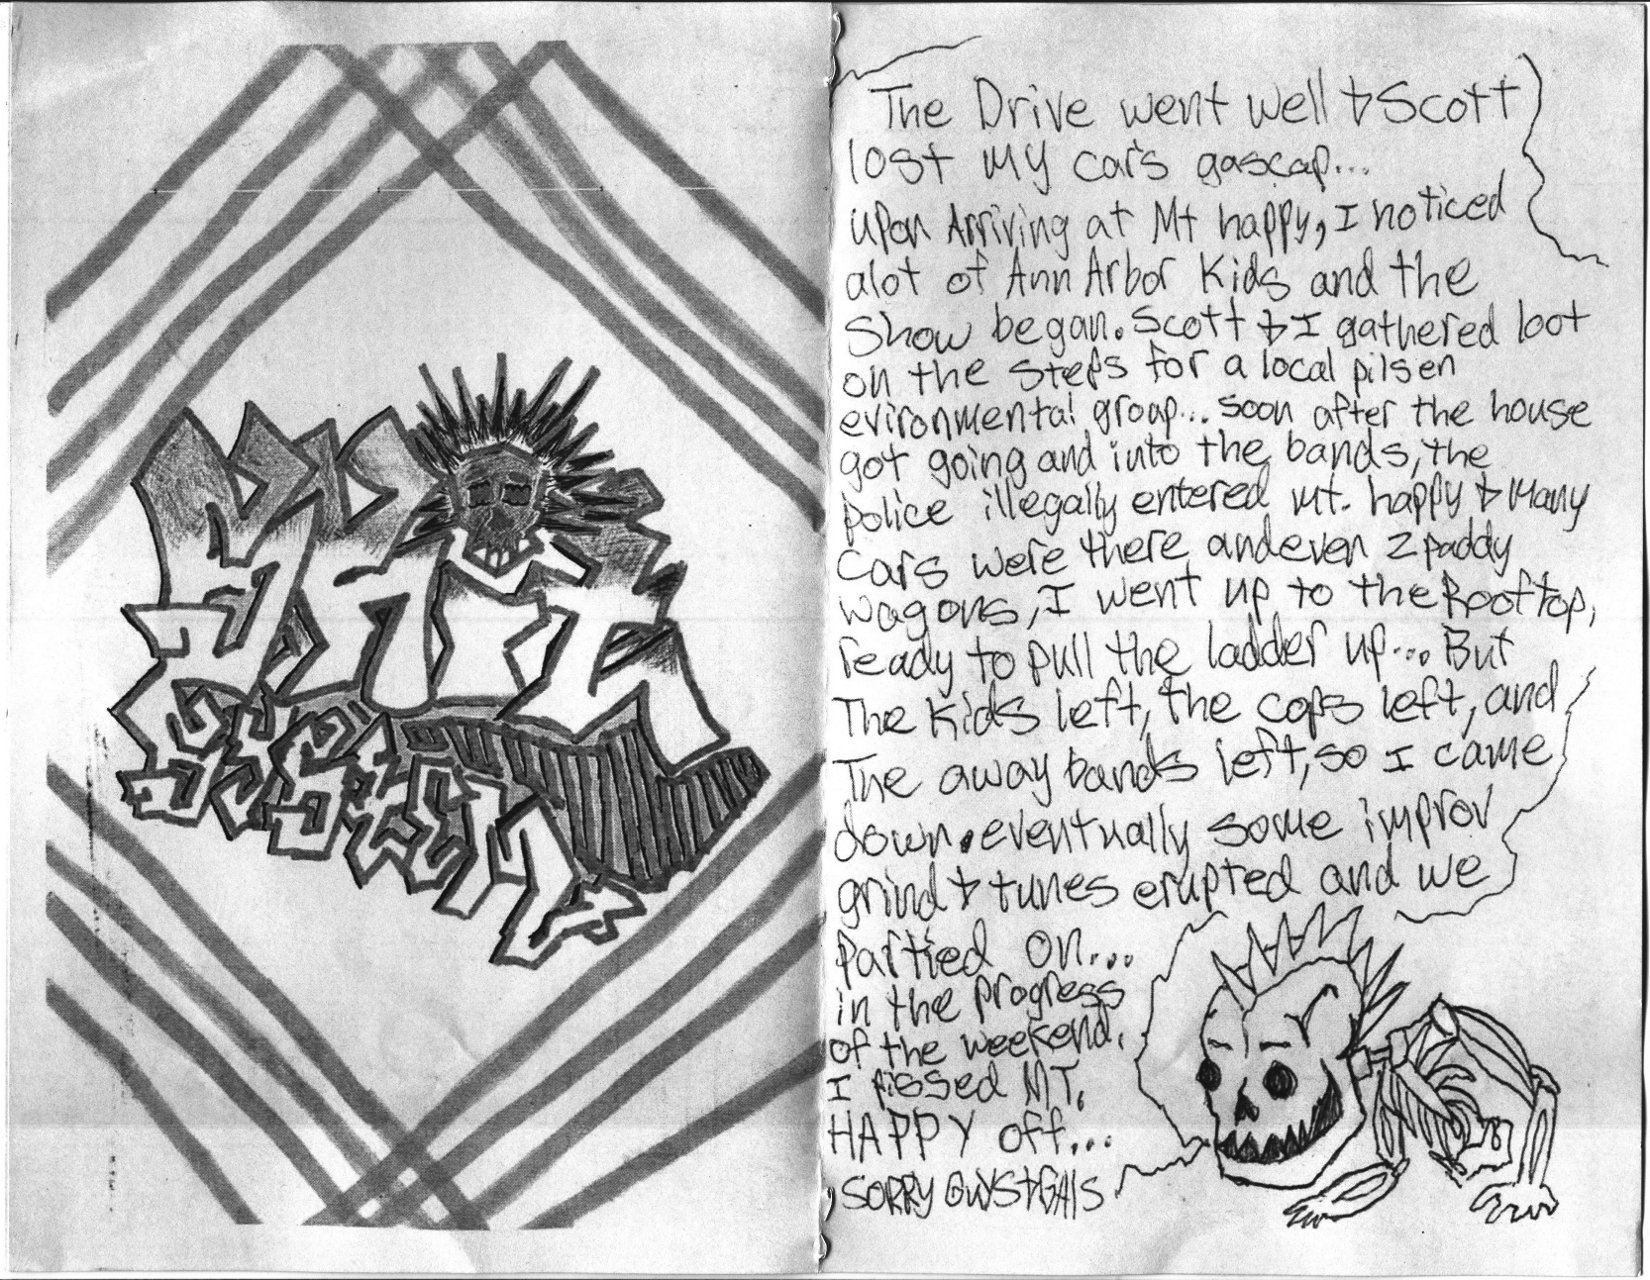 The Drive went well & Scott
lost my car's gascap...
upon Arriving at Mt happy, I noticed
alot of Ann Arbor Kids and the
Show began. Scott & I gathered loot
on the steps for a local pilsen
evironmental group... soon after the house
got going and into the bands, the
police illegally entered Mt. happy & Many
Cars were there and even 2 paddy
wagons, I went up to the Rooftop,
ready to pull the ladder up... But
The Kids left, the cops left, and
The away bands left, so I came
down. eventually some improv
grind & tunes erupted and we
partied on...
in the progress
of the weekend.
I pissed MT.
HAPPY off...
SORRY GUYS & GAlS